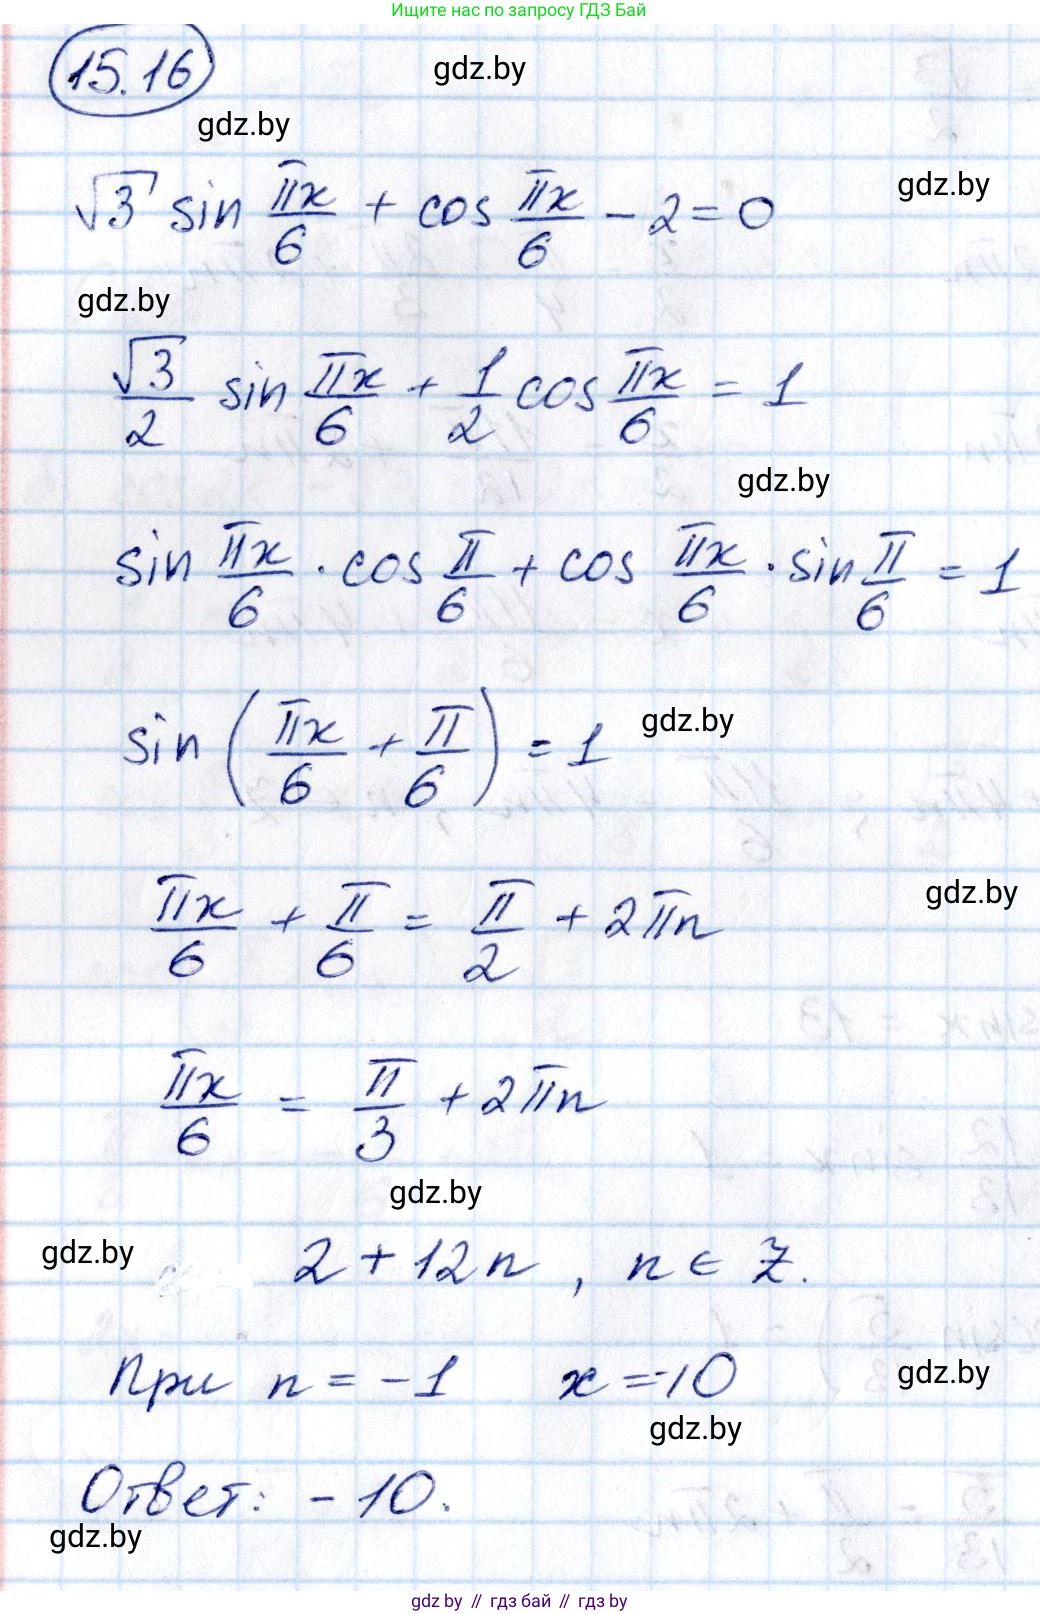 Ищите нас по запросу ГДЗ Бай
15.16
gdz.by
gdz.by
gdz.by
√3 sin πx/6 + cos πx/6 − 2 = 0
gdz.by
√3/2 sin πx/6 + 1/2 cos πx/6 = 1
gdz.by
sin πx/6 · cos π/6 + cos πx/6 · sin π/6 = 1
sin (πx/6 + π/6) = 1
gdz.by
πx/6 + π/6 = π/2 + 2πn
gdz.by
πx/6 = π/3 + 2πn
gdz.by
gdz.by
2 + 12n , n ∈ Z.
При n = −1 x = −10
gdz.by
gdz.by
Ответ: −10.
gdz.by
gdz.by // гдз бай // gdz.by